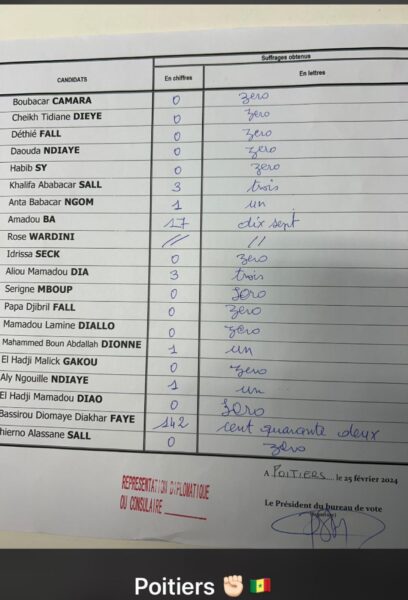 Suffrages obtenus
CANDIDATS En chiffres En lettres
Boubacar CAMARA 0 zero
Cheikh Tidiane DIEYE 0 zero
Déthié FALL 0 zero
Daouda NDIAYE 0 zero
Habib SY 0 zero
Khalifa Ababacar SALL 3 trois
Anta Babacar NGOM 1 un
Amadou BA 17 dix sept
Rose WARDINI // //
Idrissa SECK 0 zero
Aliou Mamadou DIA 3 trois
Serigne MBOUP 0 zero
Papa Djibril FALL 0 zero
Mamadou Lamine DIALLO 0 zero
Mahammed Boun Abdallah DIONNE 1 un
El Hadji Malick GAKOU 0 zero
Aly Ngouille NDIAYE 1 un
El Hadji Mamadou DIAO 0 zero
Bassirou Diomaye Diakhar FAYE 142 cent quarante deux
hierno Alassane SALL 0 zero
A POITIERS.... le 25 février 2024
REPRESENTATION DIPLOMATIQUE
OU CONSULAIRE
Le Président du bureau de vote
Poitiers ✊🏻 🇸🇳